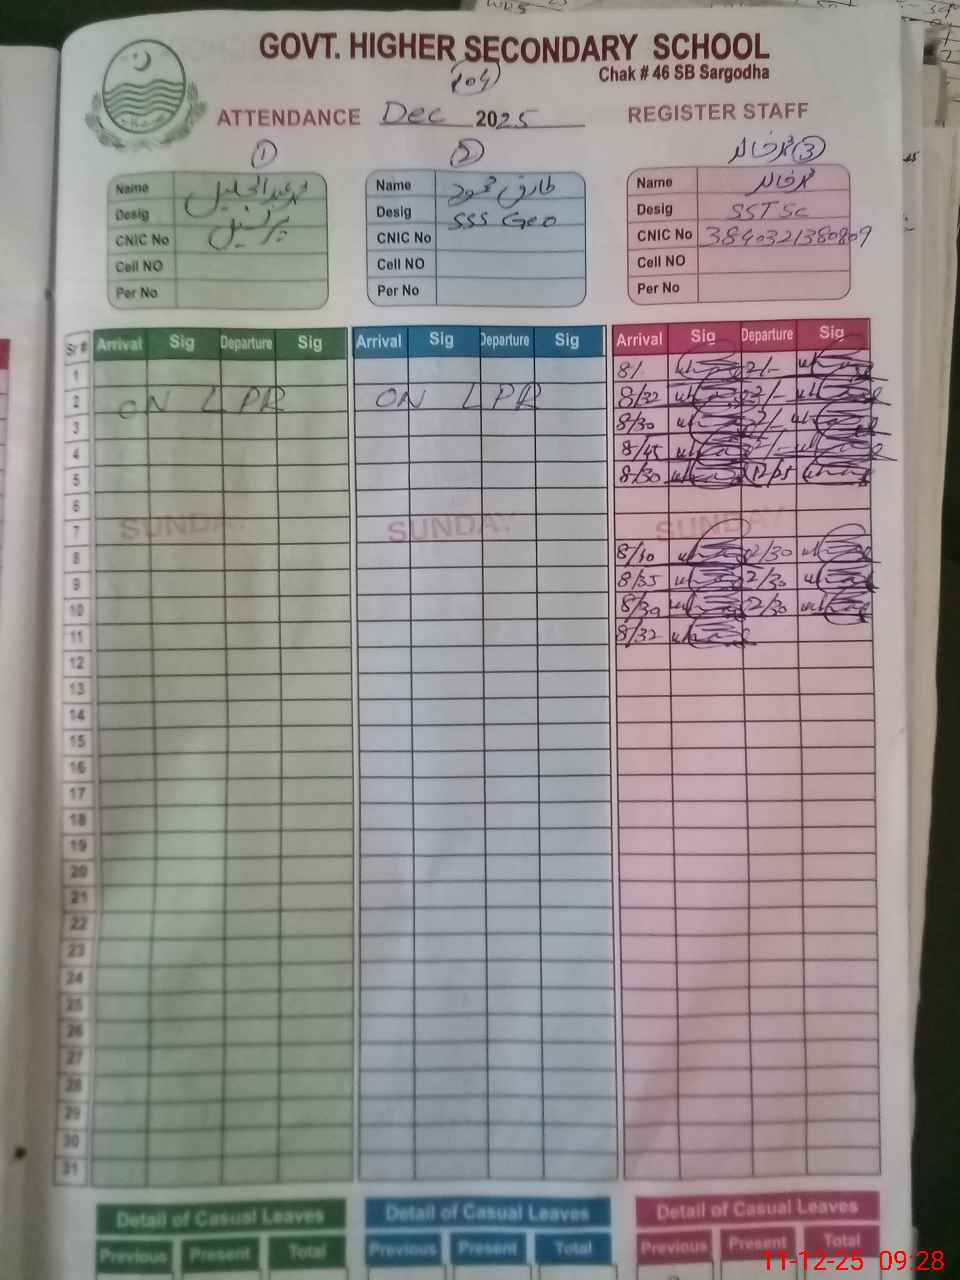 GOVT. HIGHER SECONDARY SCHOOL
Chak # 46 SB Sargodha
ATTENDANCE Dec 2025 REGISTER STAFF
1 2 محمد خالد 3
Name محمد عبدالجلیل
Desig پرنسپل
CNIC No
Cell NO
Per No
Name طارق محمود
Desig SSS Geo
CNIC No
Cell NO
Per No
Name محمد خالد
Desig SSTSc
CNIC No 3840321380809
Cell NO
Per No
Sr # Arrival Sig Departure Sig Arrival Sig Departure Sig Arrival Sig Departure Sig
1 8/- 2/-
2 ON LPR ON LPR 8/32 2/-
3 8/30 2/-
4 8/45
5 8/30
6
7 SUNDAY SUNDAY SUNDAY
8 8/30 2/30
9 8/35 2/30
10 8/30 2/30
11 8/32
12
13
14
15
16
17
18
19
20
21
22
23
24
25
26
27
28
29
30
31
Detail of Casual Leaves Detail of Casual Leaves Detail of Casual Leaves
Previous Present Total Previous Present Total Previous Present Total
11-12-25 09:28